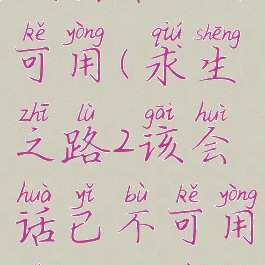 kě yòng qiú shēng
可用(求生
zhī lù gāi huì
之路2该会
huà yǐ bù kě yòng
话已不可用